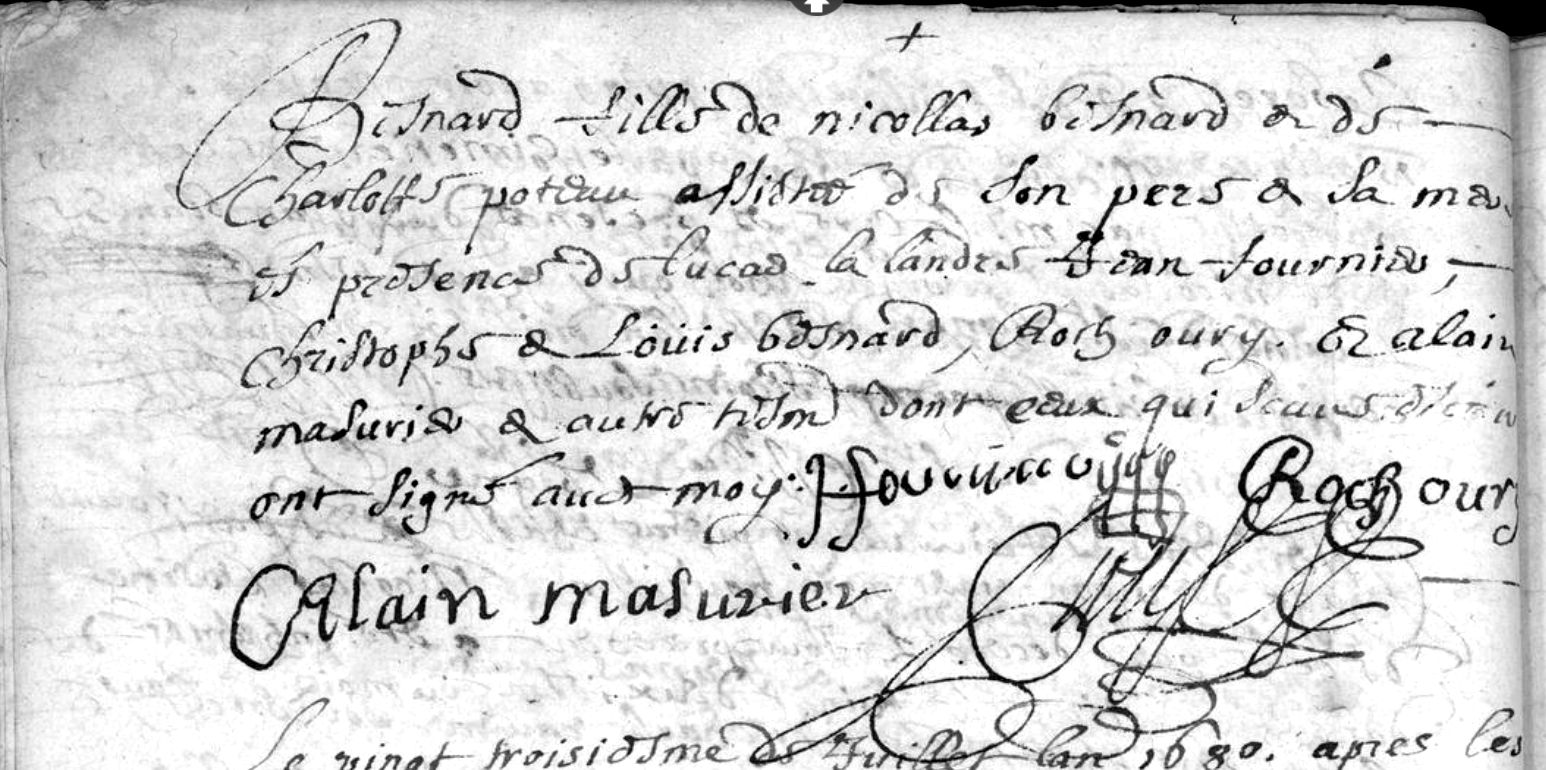 Besnard fille de nicollas besnard & de
Charlotte poteau assistee de son pere & sa mere
et presence de lucas la landre Jean fournier,
Christophe & Loüis besnard, Roch oury. & alain
masurier & autre tesm dont ceux qui scavent
ont signe avec moy. Jfournier Roch oury
Alain masurier
Le vingt troisiesme de Juillet lan 1680. apres les